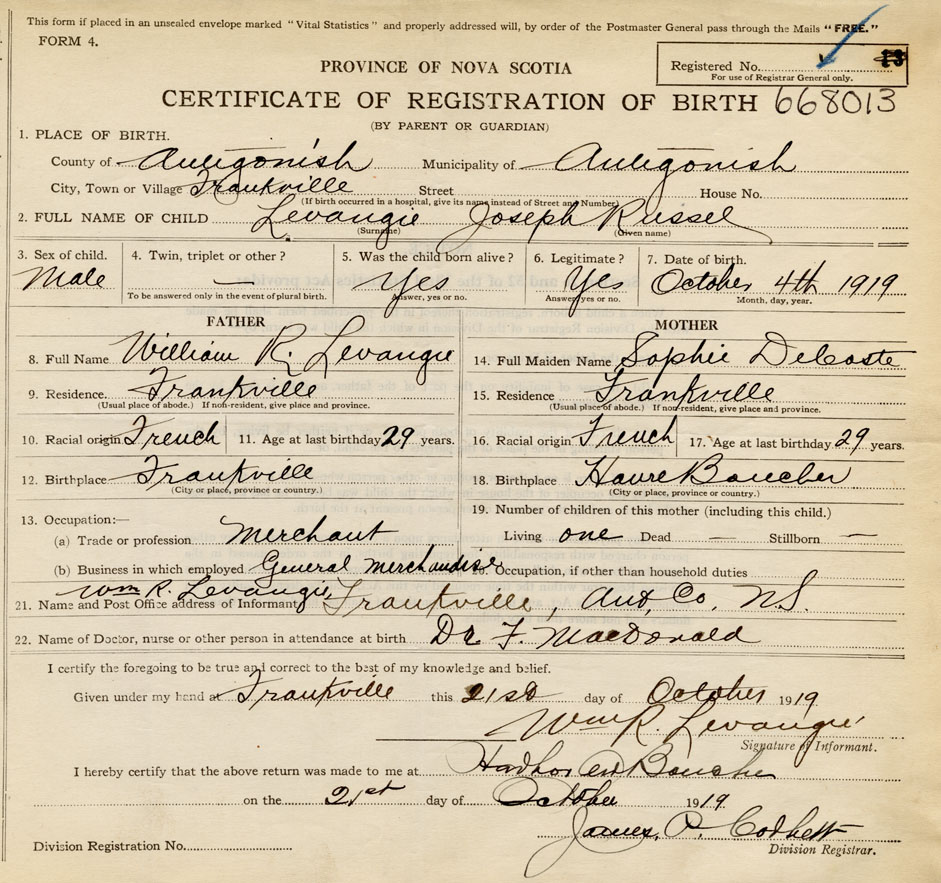 This form if placed in an unsealed envelope marked "Vital Statistics" and properly addressed will, by order of the Postmaster General pass through the Mails "FREE."
FORM 4.
Registered No. 13
For use of Registrar General only.
PROVINCE OF NOVA SCOTIA
CERTIFICATE OF REGISTRATION OF BIRTH 668013
(BY PARENT OR GUARDIAN)
1. PLACE OF BIRTH.
County of Antigonish Municipality of Antigonish
City, Town or Village Frankville Street House No.
(If birth occurred in a hospital, give its name instead of Street and Number)
2. FULL NAME OF CHILD Levangie Joseph Russel
(Surname) (Given name)
3. Sex of child. 4. Twin, triplet or other? 5. Was the child born alive? 6. Legitimate? 7. Date of birth.
Male — Yes Yes October 4th 1919
To be answered only in the event of plural birth. Answer, yes or no. Answer, yes or no. Month, day, year.
FATHER MOTHER
8. Full Name William R. Levangie 14. Full Maiden Name Sophie DeCoste
9. Residence. Frankville 15. Residence Frankville
(Usual place of abode.) If non-resident, give place and province. (Usual place of abode.) If non-resident, give place and province.
10. Racial origin French 11. Age at last birthday 29 years. 16. Racial origin French 17. Age at last birthday 29 years.
12. Birthplace Frankville 18. Birthplace Havre Boucher
(City or place, province or country.) (City or place, province or country.)
13. Occupation:— 19. Number of children of this mother (including this child.)
(a) Trade or profession Merchant Living one Dead — Stillborn —
(b) Business in which employed General merchandise 20. Occupation, if other than household duties
Wm R. Levangie,
21. Name and Post Office address of Informant Frankville, Ant. Co, N.S.
22. Name of Doctor, nurse or other person in attendance at birth Dr F. MacDonald
I certify the foregoing to be true and correct to the best of my knowledge and belief.
Given under my hand at Frankville this 21st day of October 1919
Wm R. Levangie
Signature of Informant.
I hereby certify that the above return was made to me at Boucher
on the 21st day of October 1919
James P. Corbett
Division Registration No. Division Registrar.